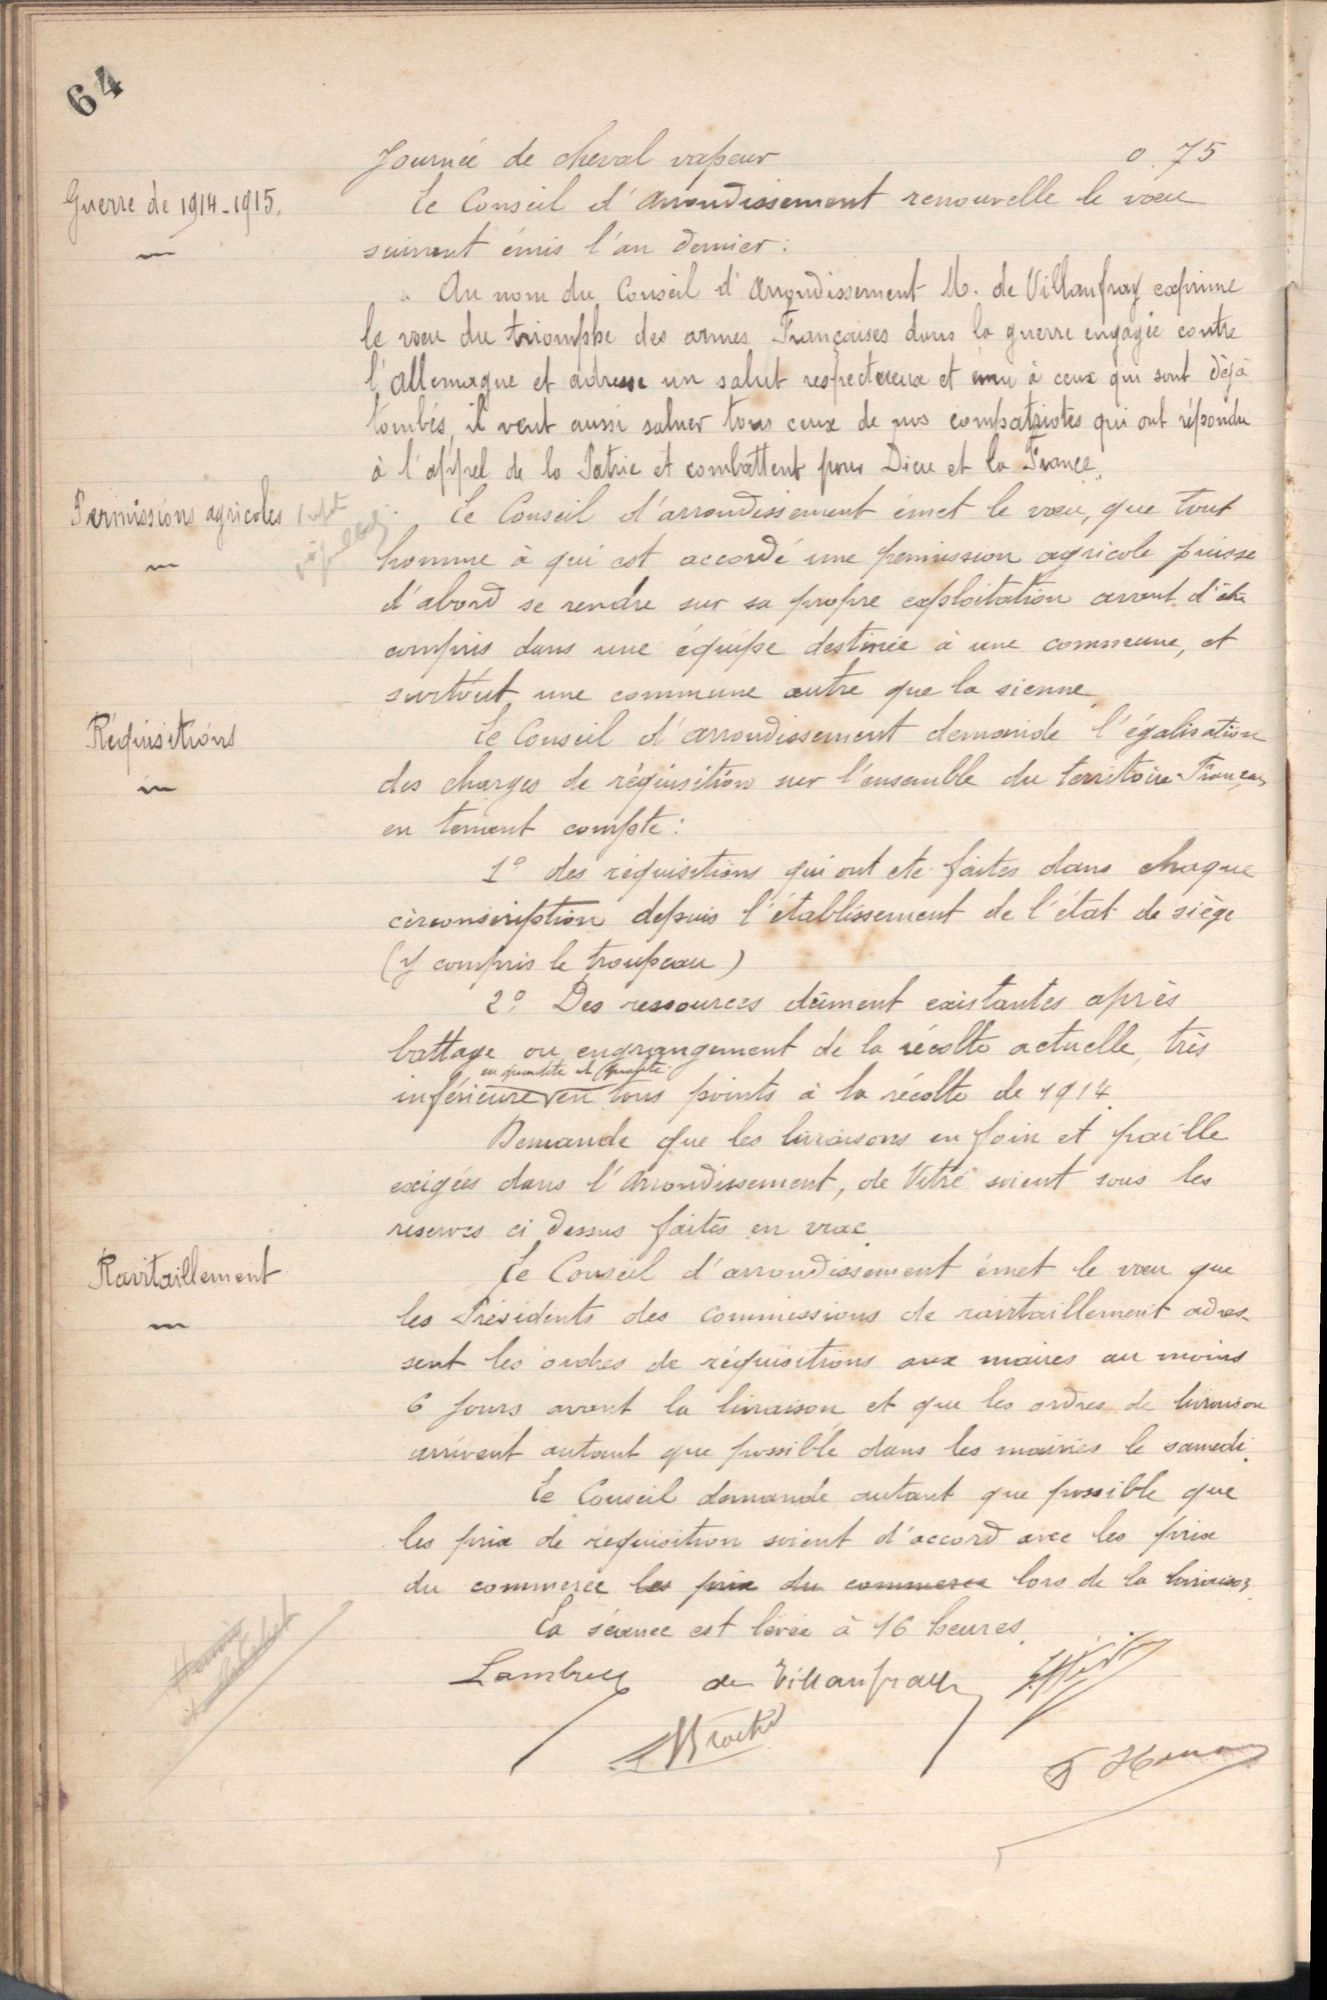 64
Journée de cheval vapeur 0.75
Guerre de 1914-1915.
Le Conseil d'Arrondissement renouvelle le vœu
suivant émis l'an dernier :
" Au nom du Conseil d'Arrondissement M. de Villanfray exprime
le vœu du triomphe des armes Françaises dans la guerre engagée contre
l'Allemagne et adresse un salut respectueux et ému à ceux qui sont déjà
tombés, il veut aussi saluer tous ceux de nos compatriotes qui ont répondu
à l'appel de la Patrie et combattent pour Dieu et la France.
Permissions agricoles
Le Conseil d'arrondissement émet le vœu, que tout
homme à qui est accordé une permission agricole puisse
d'abord se rendre sur sa propre exploitation avant d'être
compris dans une équipe destinée à une commune, et
surtout une commune autre que la sienne.
Réquisitions
Le Conseil d'arrondissement demande l'égalisation
des charges de réquisition sur l'ensemble du territoire Français
en tenant compte :
1° des réquisitions qui ont été faites dans chaque
circonscription depuis l'établissement de l'état de siège
(y compris le troupeau)
2° Des ressources dûment existantes après
battage ou engrangement de la récolte actuelle très
en quantité et qualité
inférieure en tous points à la récolte de 1914.
Demande que les livraisons en foin et paille
exigées dans l'Arrondissement, de Vitré soient sous les
réserves ci dessus faites en vrac.
Ravitaillement
Le Conseil d'arrondissement émet le vœu que
les Présidents des commissions de ravitaillement adres-
sent les ordres de réquisitions aux maires au moins
6 jours avant la livraison et que les ordres de livraison
arrivent autant que possible dans les mairies le samedi.
Le Conseil demande autant que possible que
les prix de réquisition soient d'accord avec les prix
du commerce les prix du commerce lors de la livraison.
La séance est levée à 16 heures.
de Villanfray